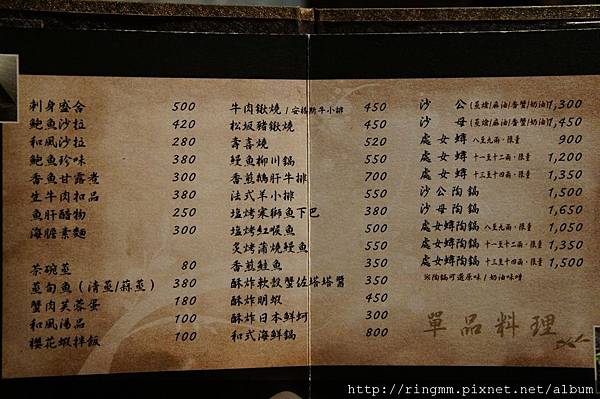 刺身盛合 500
鮑魚沙拉 420
和風沙拉 280
鮑魚珍味 380
香魚甘露煮 300
生牛肉扣品 380
魚肝醋物 250
海膽素麵 300
茶碗蒸 80
蒸旬魚（清蒸/蒜蒸） 380
蟹肉芙蓉蛋 180
和風湯品 100
櫻花蝦拌飯 100
牛肉鍬燒 /安格斯牛小排 450
松坂豬鍬燒 450
壽喜燒 520
鰻魚柳川鍋 550
香煎鵝肝牛排 700
法式羊小排 550
塩烤寒獅魚下巴 380
塩烤紅喉魚 500
炙烤蒲燒鰻魚 550
香煎鮭魚 350
酥炸軟殼蟹佐塔塔醬 350
酥炸明蝦 450
酥炸日本鮮蚵 300
和式海鮮鍋 800
沙公 (蒸燴/麻油/香蟹/奶油) 1,300
沙母 (蒸燴/麻油/香蟹/奶油) 1,450
處女蟳 八至九兩，限量 900
處女蟳 十一至十二兩，限量 1,200
處女蟳 十三至十四兩，限量 1,350
沙公陶鍋 1,500
沙母陶鍋 1,650
處女蟳陶鍋 八至九兩，限量 1,050
處女蟳陶鍋 十一至十二兩，限量 1,350
處女蟳陶鍋 十三至十四兩，限量 1,500
※陶鍋可選原味/奶油味噌
單品料理
http://ringmm.pixnet.net/album